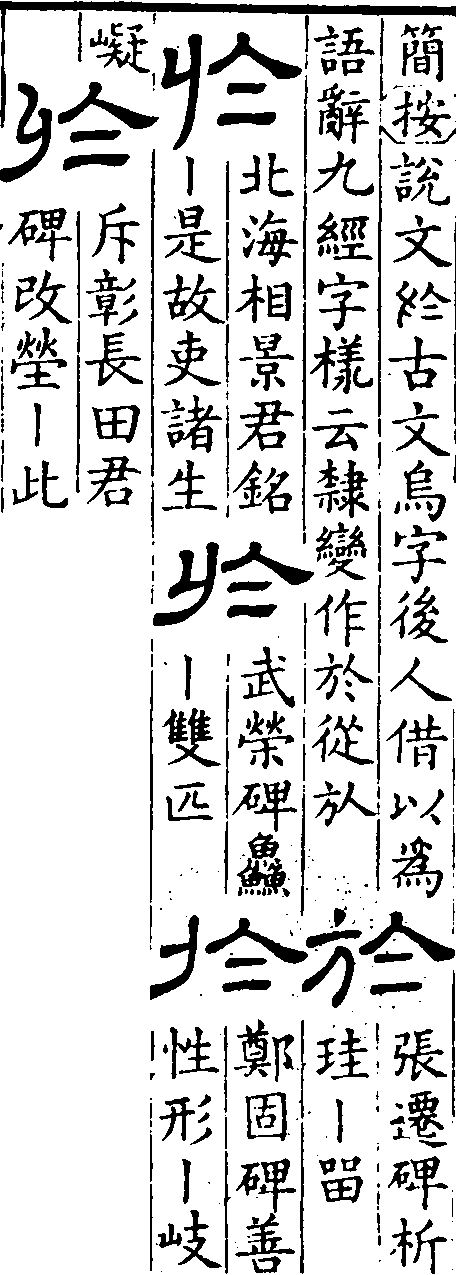 簡按說文古文烏字後人借以爲
語辭九經字樣云隸變作於從㫃
於
張遷碑析
珪丨㽞
於
北海相景君銘
丨是故吏諸生
於
武榮碑鱻
丨雙匹
於
鄭固碑善
性形丨岐
嶷
於
斥彰長田君
碑改塋丨此